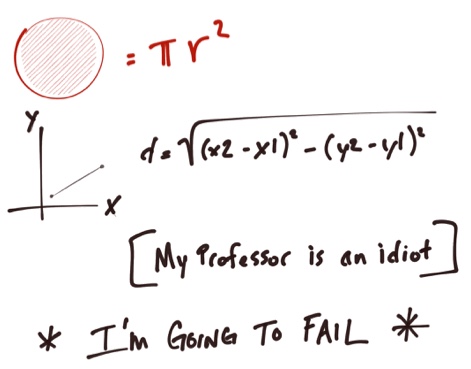 = πr²
Y
d = √(x2 - x1)² - (y2 - y1)²
X
[My Professor is an idiot]
* I'm GOING TO FAIL *